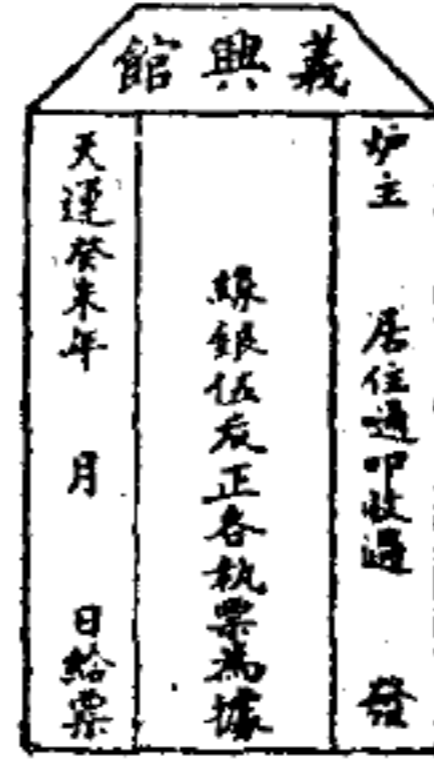 義興館
炉主 居住通叩收過 發
緣銀伍㡳正各執票為據
天運癸未年 月 日給票